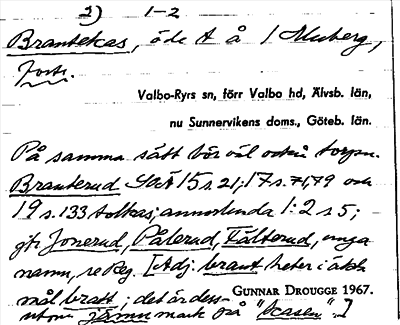 3) 1-2
Brantekas, öde t å / Muberg,
forts.
Valbo-Ryrs sn, förr Valbo hd, Älvsb. län,
nu Sunnervikens doms., Göteb. län.
På samma sätt bör väl också torpn.
Branterud SOÄ 15 s 21; 17 s. 71, 79 och
19 s. 133 tolkas; annorlunda 1:2 s 5;
jfr Jonerud, Pålerud, Fälterud, unga
namn, se Reg. [Adj. brant heter i äkta
mål bratt; det är dess-
GUNNAR DROUGGE 1967.
utom jämn mark på "kasen".]